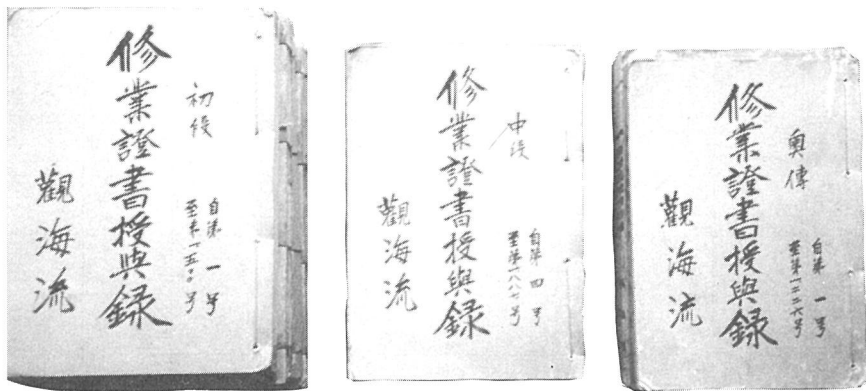 初段
自第一号
修業證書授與録
觀海流
中段
自第四号
至第一八八七号
修業證書授與録
觀海流
奥傳
自第一号
至第一二二六号
修業證書授與録
觀海流